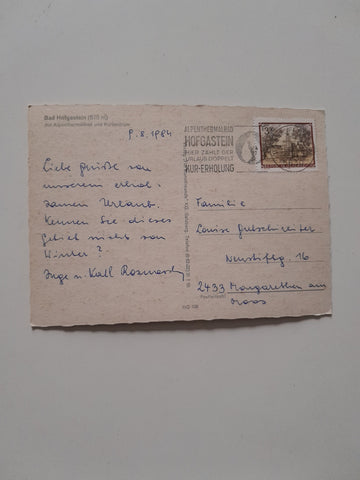 Bad Hofgastein (870 m)
mit Alpenthermalbad und Kurzentrum
9.8.1984
ALPENTHERMALBAD
HOFGASTEIN
HIER ZÄHLT DER
URLAUB DOPPELT
KUR-ERHOLUNG
Liebe Grüße von
unserem erhol-
samen Urlaub.
Kennen Sie dieses
Gebiet nicht von
Winter?
Inge u. Karl
Familie
Louise Gutschreiter
Neustiftg. 16
2433 Margarethen am
Moos
Postleitzahl